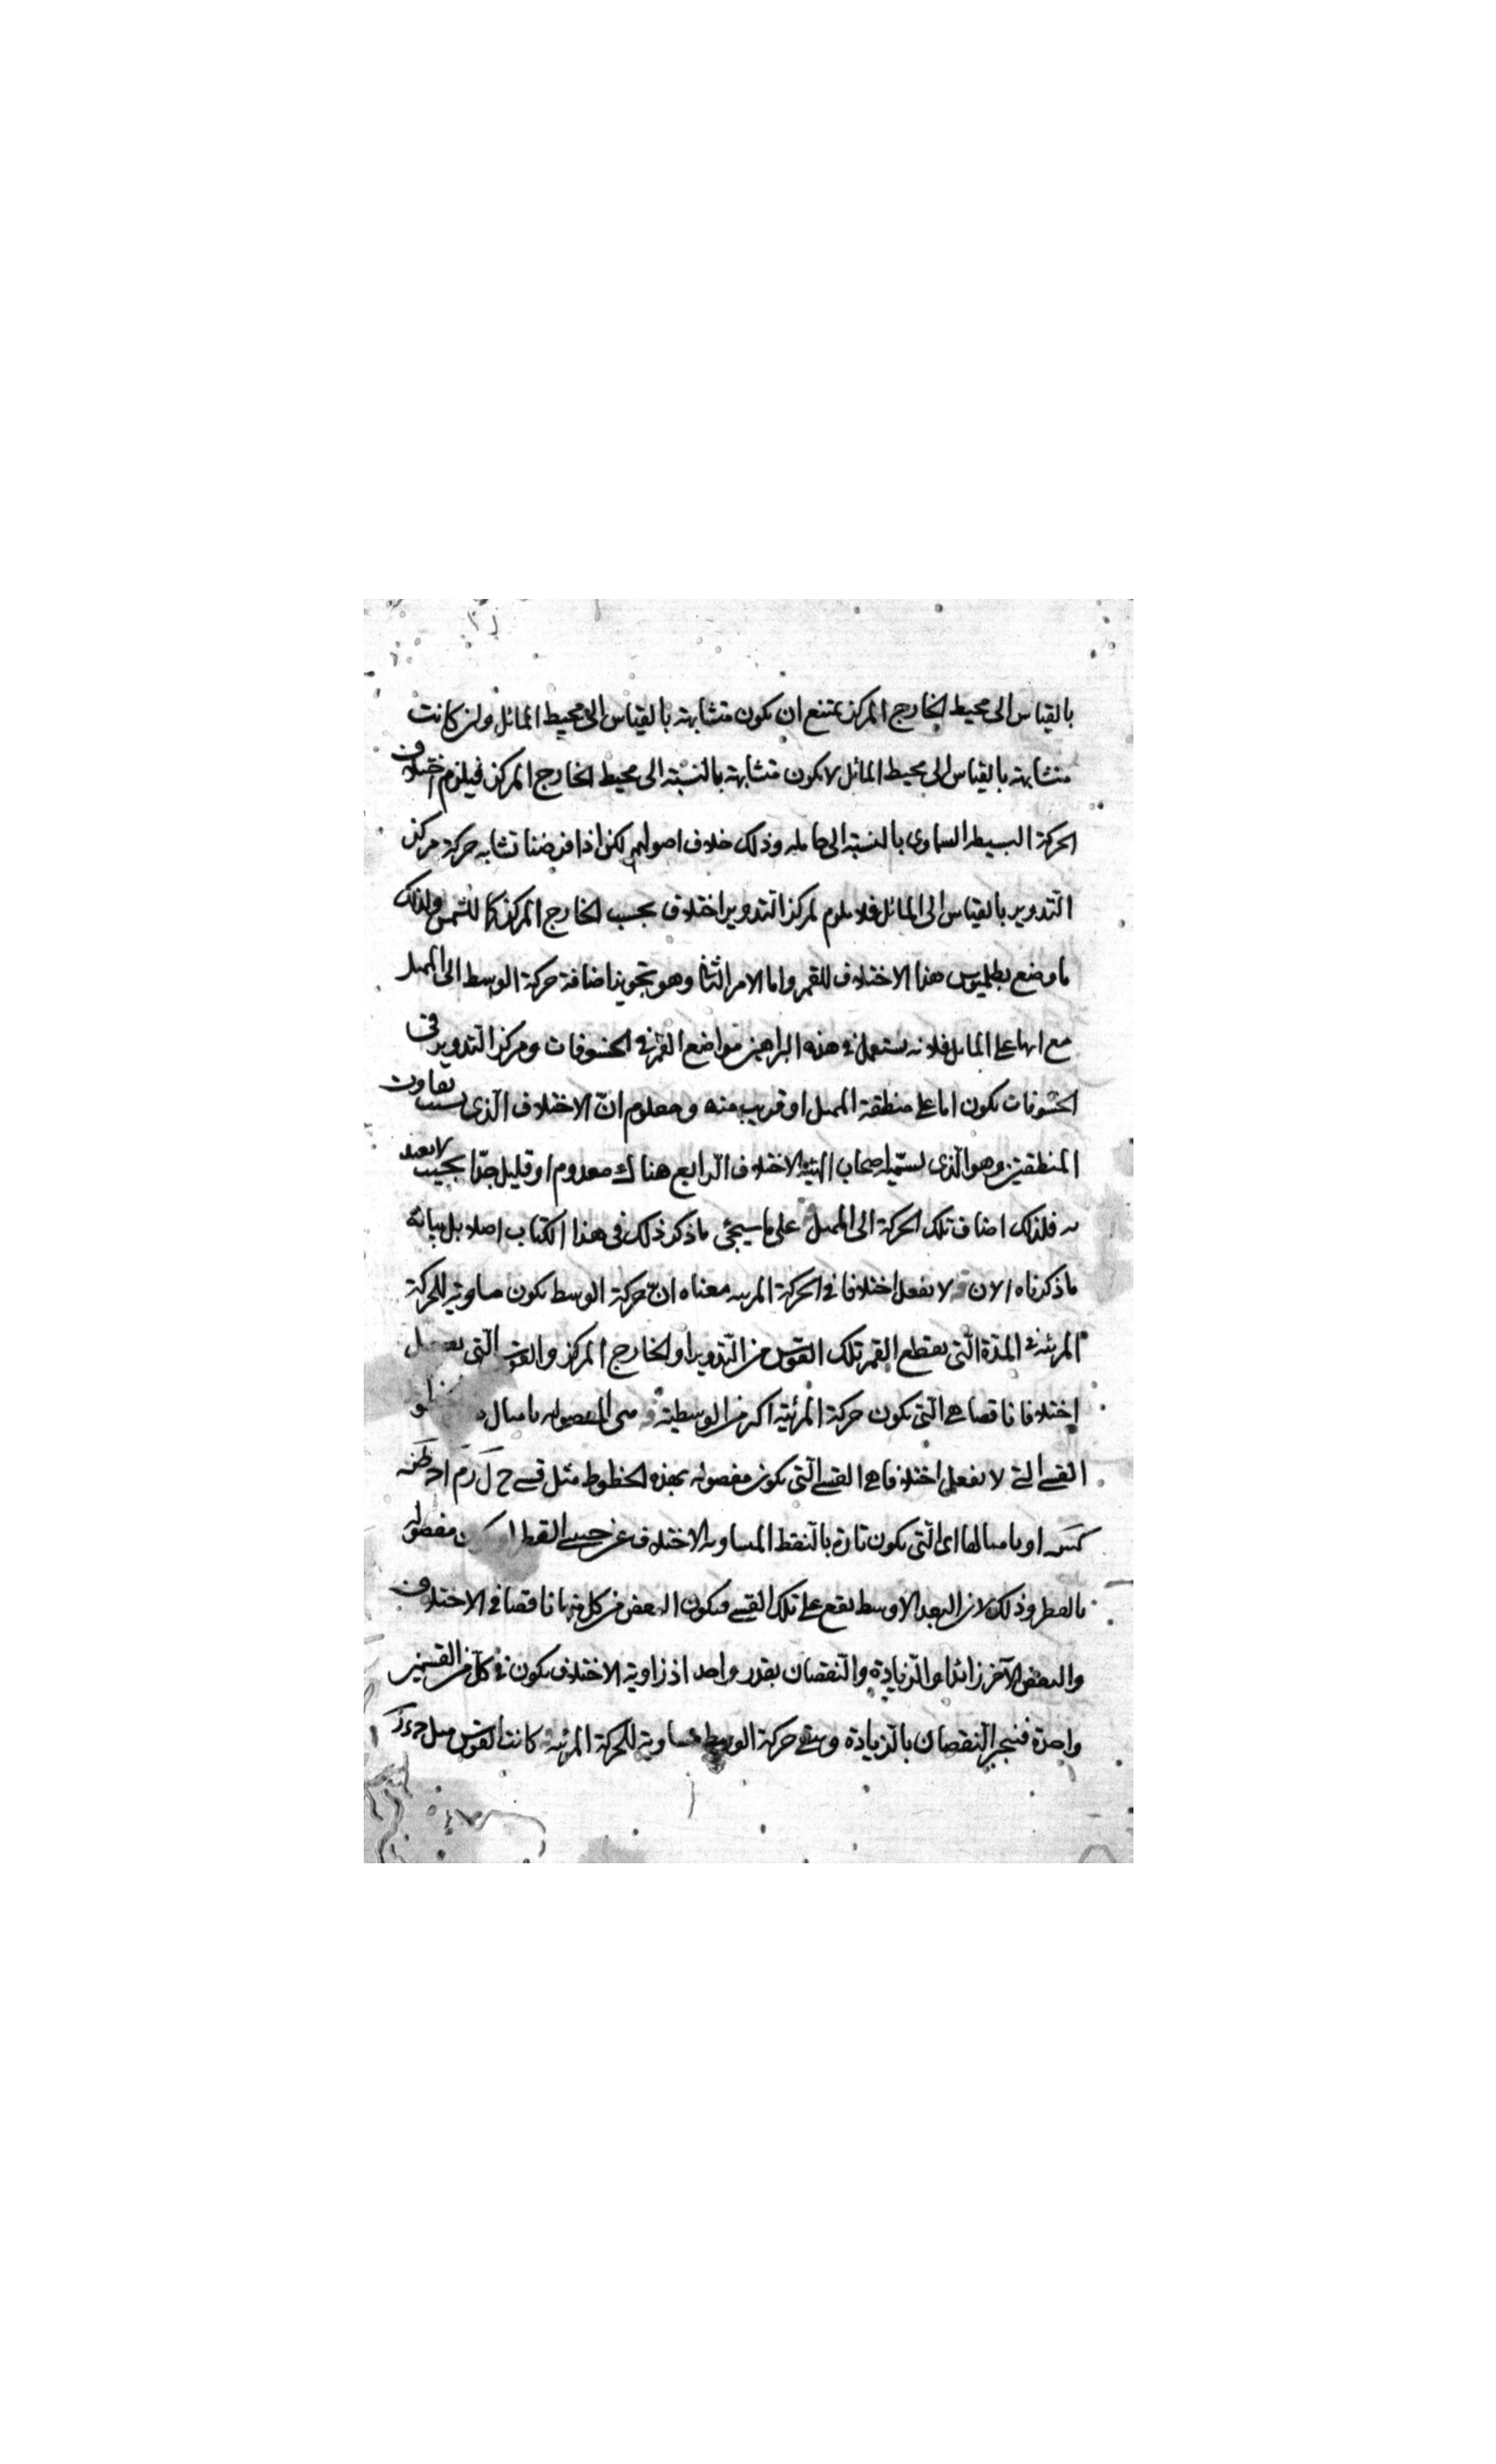 بالقياس الى محيط الخارج المركز يمتنع ان يكون متشابهة بالقياس الى محيط المائل ولن كانت
متشابهة بالقياس الى محيط المائل لا يكون متشابهة بالنسبة الى محيط الخارج المركز فيلزم اختلاف
الحركة البسيطه السماوى بالنسبة الى حامله وذلك خلاف اصولهم لكن اذا فرضنا تشابه حركة مركز
التدوير بالقياس الى المائل فلا يلزم لمركز التدوير اختلاف بحسب الخارج المركز كما للشمس ولذلك
ما وضع بطلميوس هذا الاختلاف للقمر واما الامر الثانى وهو تجويز اضافة حركة الوسط الى الممثل
مع انها على المائل فلانه يستعمل فى هذه البراهين مواضع القمر فى الخسوفات ومركز التدوير فى
الخسوفات يكون اما على منطقة الممثل او قريب منه ومعلوم انّ الاختلاف الّذى بسبب تفاوت
المنطقتين وهو الّذى يسمّيه اصحاب الهيئة الاختلاف الرابع هناك معدوم او قليل جدّا بحيث لا يعتد
به فلذلك اضاف تلك الحركة الى الممثل على ما سيجئ ما ذكر ذلك فى هذا الكتاب اصلا بل بيانه
ما ذكرناه الان لا يفعل اختلافا فى الحركة المرئيه معناه انّ حركة الوسط يكون مساوية للحركة
المرئية فى المدّة الّتى يقطع القمر تلك القوس من التدوير او الخارج المركز والقوس الّتى
اختلافا ناقصا هى الّتى يكون حركة المرئية اكثر من الوسطية
القسى التى لا يفعل اختلافا هى القسى الّتى يكون مفصوله بهذه الخطوط مثل قسى
او بامثالها اى الّتى يكون تارة بالنقط المساويه الاختلاف عن جنبتى القطر مفصوله
بالقطر وذلك لان البعد الاوسط يقع على تلك القسى فيكون البعض من كل منها ناقصا فى الاختلاف
والبعض الآخر زائدا والزيادة والنقصان بقدر واحد اذ زاوية الاختلاف يكون فى كلّ من القسمين
واحدة فينجبر النقصان بالزيادة ويبقى حركة الوسط مساوية للحركة المرئية كانت القوس مثل